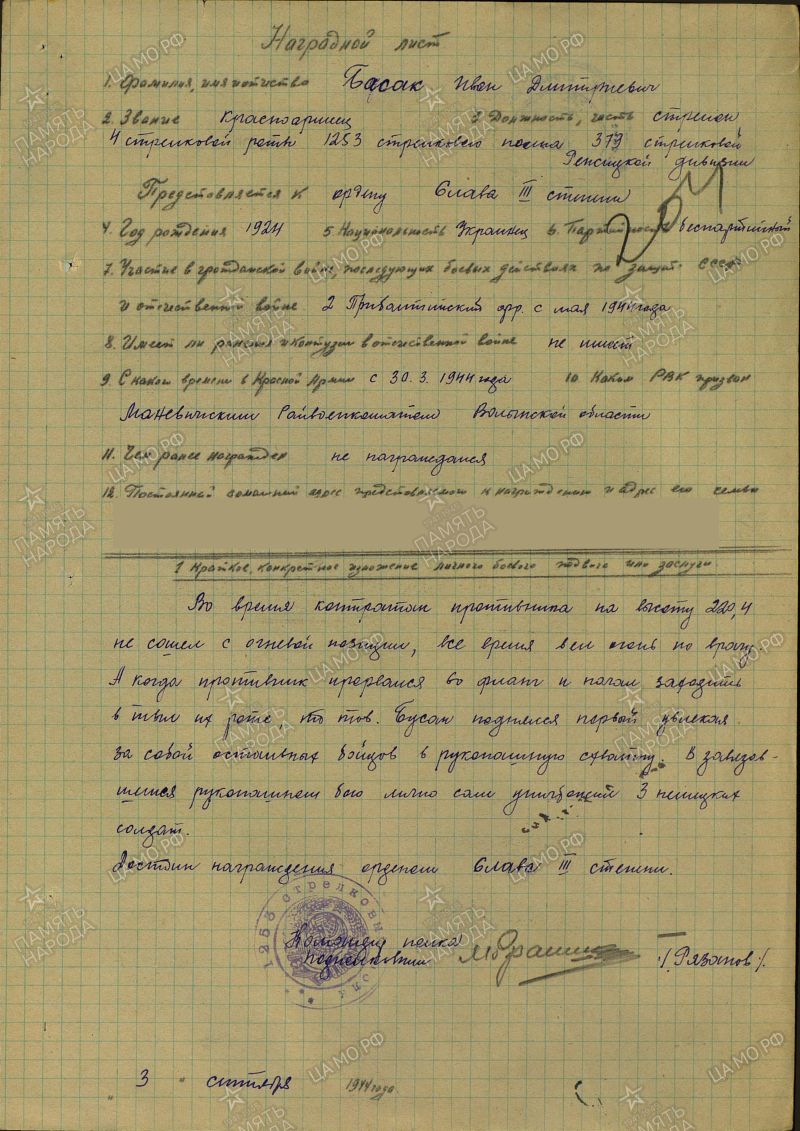 Наградной лист
1. Фамилия, имя и отчество Басак Иван Дмитриевич
2. Звание Красноармеец 3. Должность, часть стрелок
4 стрелковой роты 1253 стрелкового полка 379 стрелковой
Режицкой дивизии
Представляется к ордену Слава III степени
4. Год рождения 1924 5. Национальность Украинец 6. Партийность беспартийный
7. Участие в гражданской войне, последующих боевых действиях по защит. СССР
и отечественной войне 2 Прибалтийский фр. с мая 1944 года
8. Имеет ли ранения и контузии в отечественной войне не имеет
9. С какого времени в Красной Армии с 30.3.1944 года 10. Каким РВК призван
Маневичским Райвоенкоматом Волынской области
11. Чем ранее награжден не награждался
12. Постоянный домашний адрес представляемого к награждению и адрес его семьи
1 Краткое, конкретное изложение личного боевого подвига или заслуги
Во время контратак противника на высоту 220,4
не сошел с огневой позиции, все время вел огонь по врагу.
А когда противник прорвался во фланг и начал заходить
в тыл их роте то тов. Бусак поднялся первой увлекая
за собой остальных бойцов в рукопашную схватку. В завязав-
шемся рукопашнем бою лично сам уничтожил 3 немецких
солдат.
Достоин награждения орденом Слава III степени.
1253 стрелковый полк
Командир полка
подполковник /Рязанов/.
3 " сентября 1944 года.
ПАМЯТЬ НАРОДА
ЦАМО.РФ